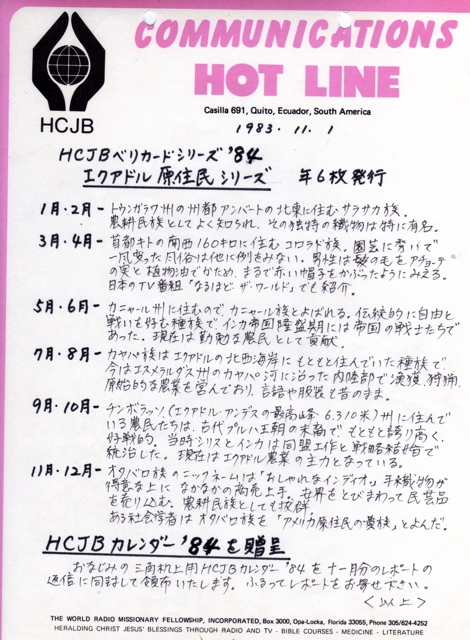 COMMUNICATIONS
HOT LINE
HCJB
Casilla 691, Quito, Ecuador, South America
1983. 11. 1
HCJBベリカードシリーズ '84
エクアドル原住民シリーズ 年6枚発行
1月・2月- トゥンガラワ州の州都アンバートの北東に住むサラサカ族。
農耕民族としてよく知られ、その独特の織物は特に有名。
3月・4月- 首都キトの南西160キロに住むコロラド族。園芸に秀いで
一風変った風俗は他に例をみない。男性は髪の毛をアチョーテ
の実と植物油でかため、まるで赤い帽子をかぶったようにみえる。
日本のTV番組「なるほどザ・ワールド」でも紹介。
5月・6月- カニャール州に住むのでカニャール族とよばれる。伝統的に自由と
戦いを好む種族で、インカ帝国隆盛期には帝国の戦士たちで
あった。現在は勤勉な農民として貢献。
7月・8月- カヤパ族はエクアドルの北西海岸にもともと住んでいた種族で、
今はエスメラルダス州のカヤパ河に沿った内陸部で漁獲、狩猟、
原始的な農業を営んでおり、言語や服装も昔のまま。
9月・10月- チンボラッソ(エクアドル・アンデスの最高峰 6,310米)州に住んで
いる農民たちは、古代プルハ王朝の末裔で、もともと誇り高く、
好戦的。当時シリスとインカは同盟工作と戦略結婚で
統治した。現在はエクアドル農業の主力となっている。
11月・12月- オタバロ族のニックネームは「おしゃれなインディオ」。手末織物が
得意な上に なかなかの商売上手。世界をとびまわって民芸品
を売り込む。農耕民族としても抜群。
ある社会学者はオタバロ族を「アメリカ原住民の貴族」とよんだ。
HCJBカレンダー '84を贈呈
おなじみの三角机上用HCJBカレンダー'84を十一月分のレポートの
返信に同封して領布いたします。ふるってレポートをお寄せ下さい。
<以上>
THE WORLD RADIO MISSIONARY FELLOWSHIP, INCORPORATED, Box 3000, Opa-Locka, Florida 33055, Phone 305/624-4252
HERALDING CHRIST JESUS' BLESSINGS THROUGH RADIO AND TV - BIBLE COURSES - MEDICINE - LITERATURE